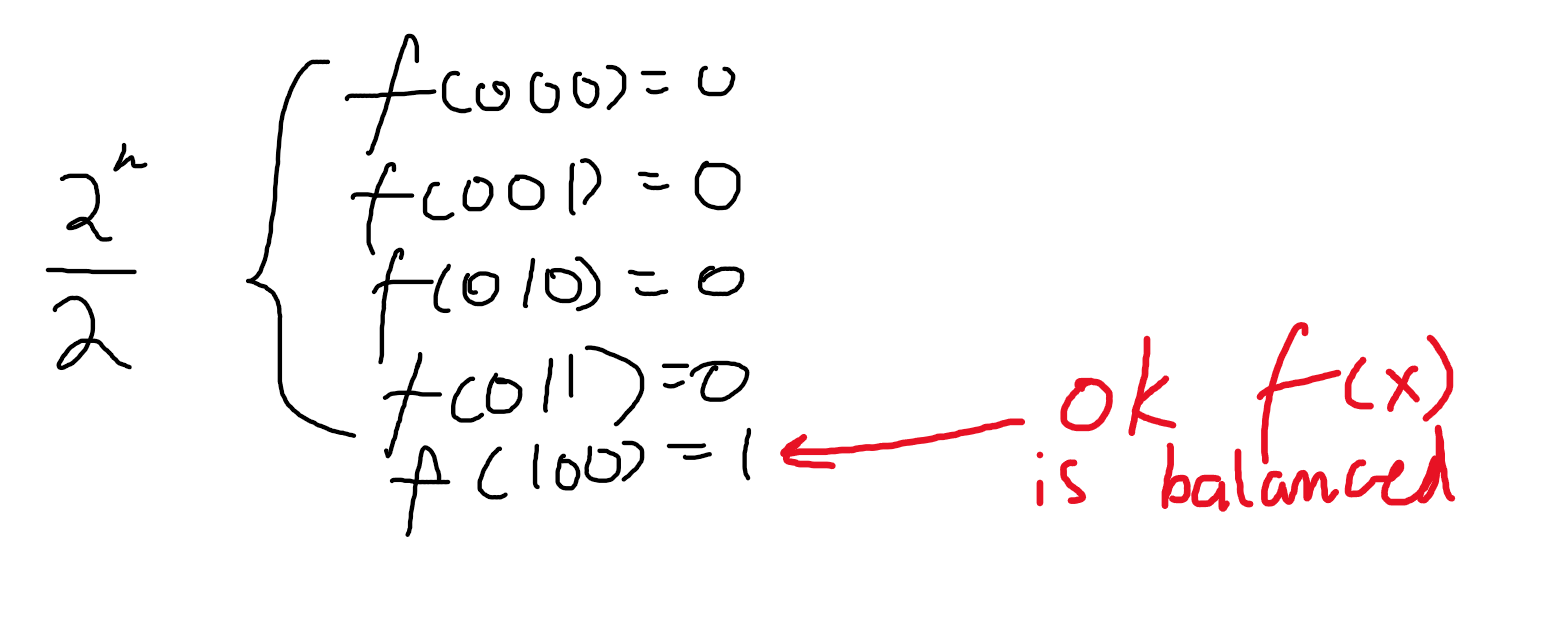 f(000)=0
f(001)=0
2^n
f(010)=0
2
f(011)=0
f(100)=1
ok f(x)
is balanced